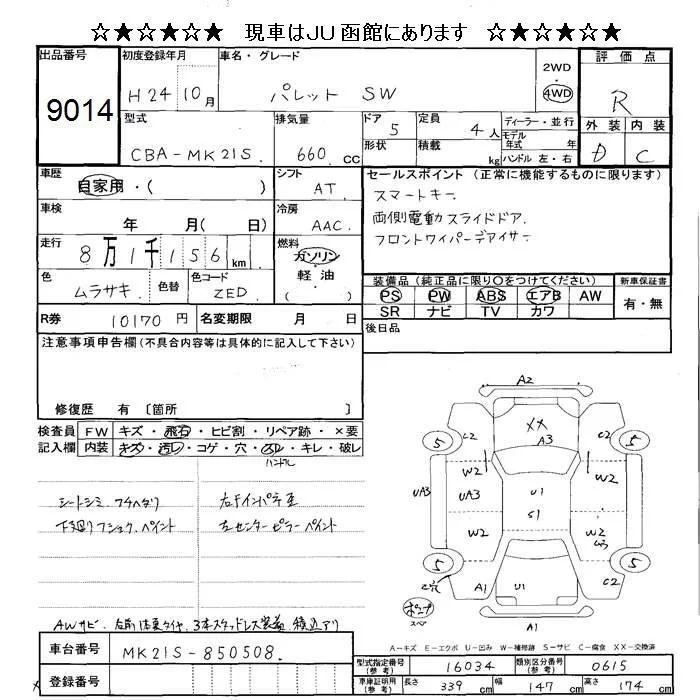 ☆★☆★☆★ 現車はJU函館にあります ☆★☆★☆★
出品番号 9014
初度登録年月 H24 10月
車名・グレード パレット SW
2WD 4WD
評価点 R
外装 D 内装 C
型式 CBA-MK21S
排気量 660 cc
ドア 5
定員 4人
形状
積載 kg
ディーラー・並行
モデル年式 年式
ハンドル 左・右
車歴 自家用・( )
シフト AT
車検 年 月( 日)
冷房 AAC
走行 8万1千156km
燃料 ガソリン 軽油 ( )
色 ムラサキ 色替
色コード ZED
R券 10170円
名変期限 月 日
セールスポイント (正常に機能するものに限ります)
スマートキー
両側電動スライドドア
フロントワイパーデアイサー
装備品 (純正品に限り○をつけてください)
PS PW ABS エアB AW
SR ナビ TV カワ
新車保証書 有・無
後日品
注意事項申告欄(不具合内容等は具体的に記入して下さい)
修復歴 有 〔箇所 〕
検査員記入欄
FW キズ・飛石・ヒビ割・リペア跡・×要
内装 キズ・汚レ・コゲ・穴・スレ・キレ・破レ
ハンドル
シートシミ、フチヘタリ
右インパネ
下廻り ペイント
左センターピラーペイント
AWサビ 3本スタッドレス装着 積込アリ
車台番号 MK21S-850508
登録番号
A2
XX
A3
C2 C2
5 5
W2 W2
UA3 UA3 U1 UA3
S1
W2 W2
5 5
C穴 A1 U1 C2
A1
ポンプ
スペア
A-キズ E-エクボ U-凹み W-補修跡 S-サビ C-腐食 XX-交換済
型式指定番号(参考) 16034
類別区分番号(参考) 0615
車庫証明記入(参考) 長さ 339cm 幅 147cm 高さ 174cm